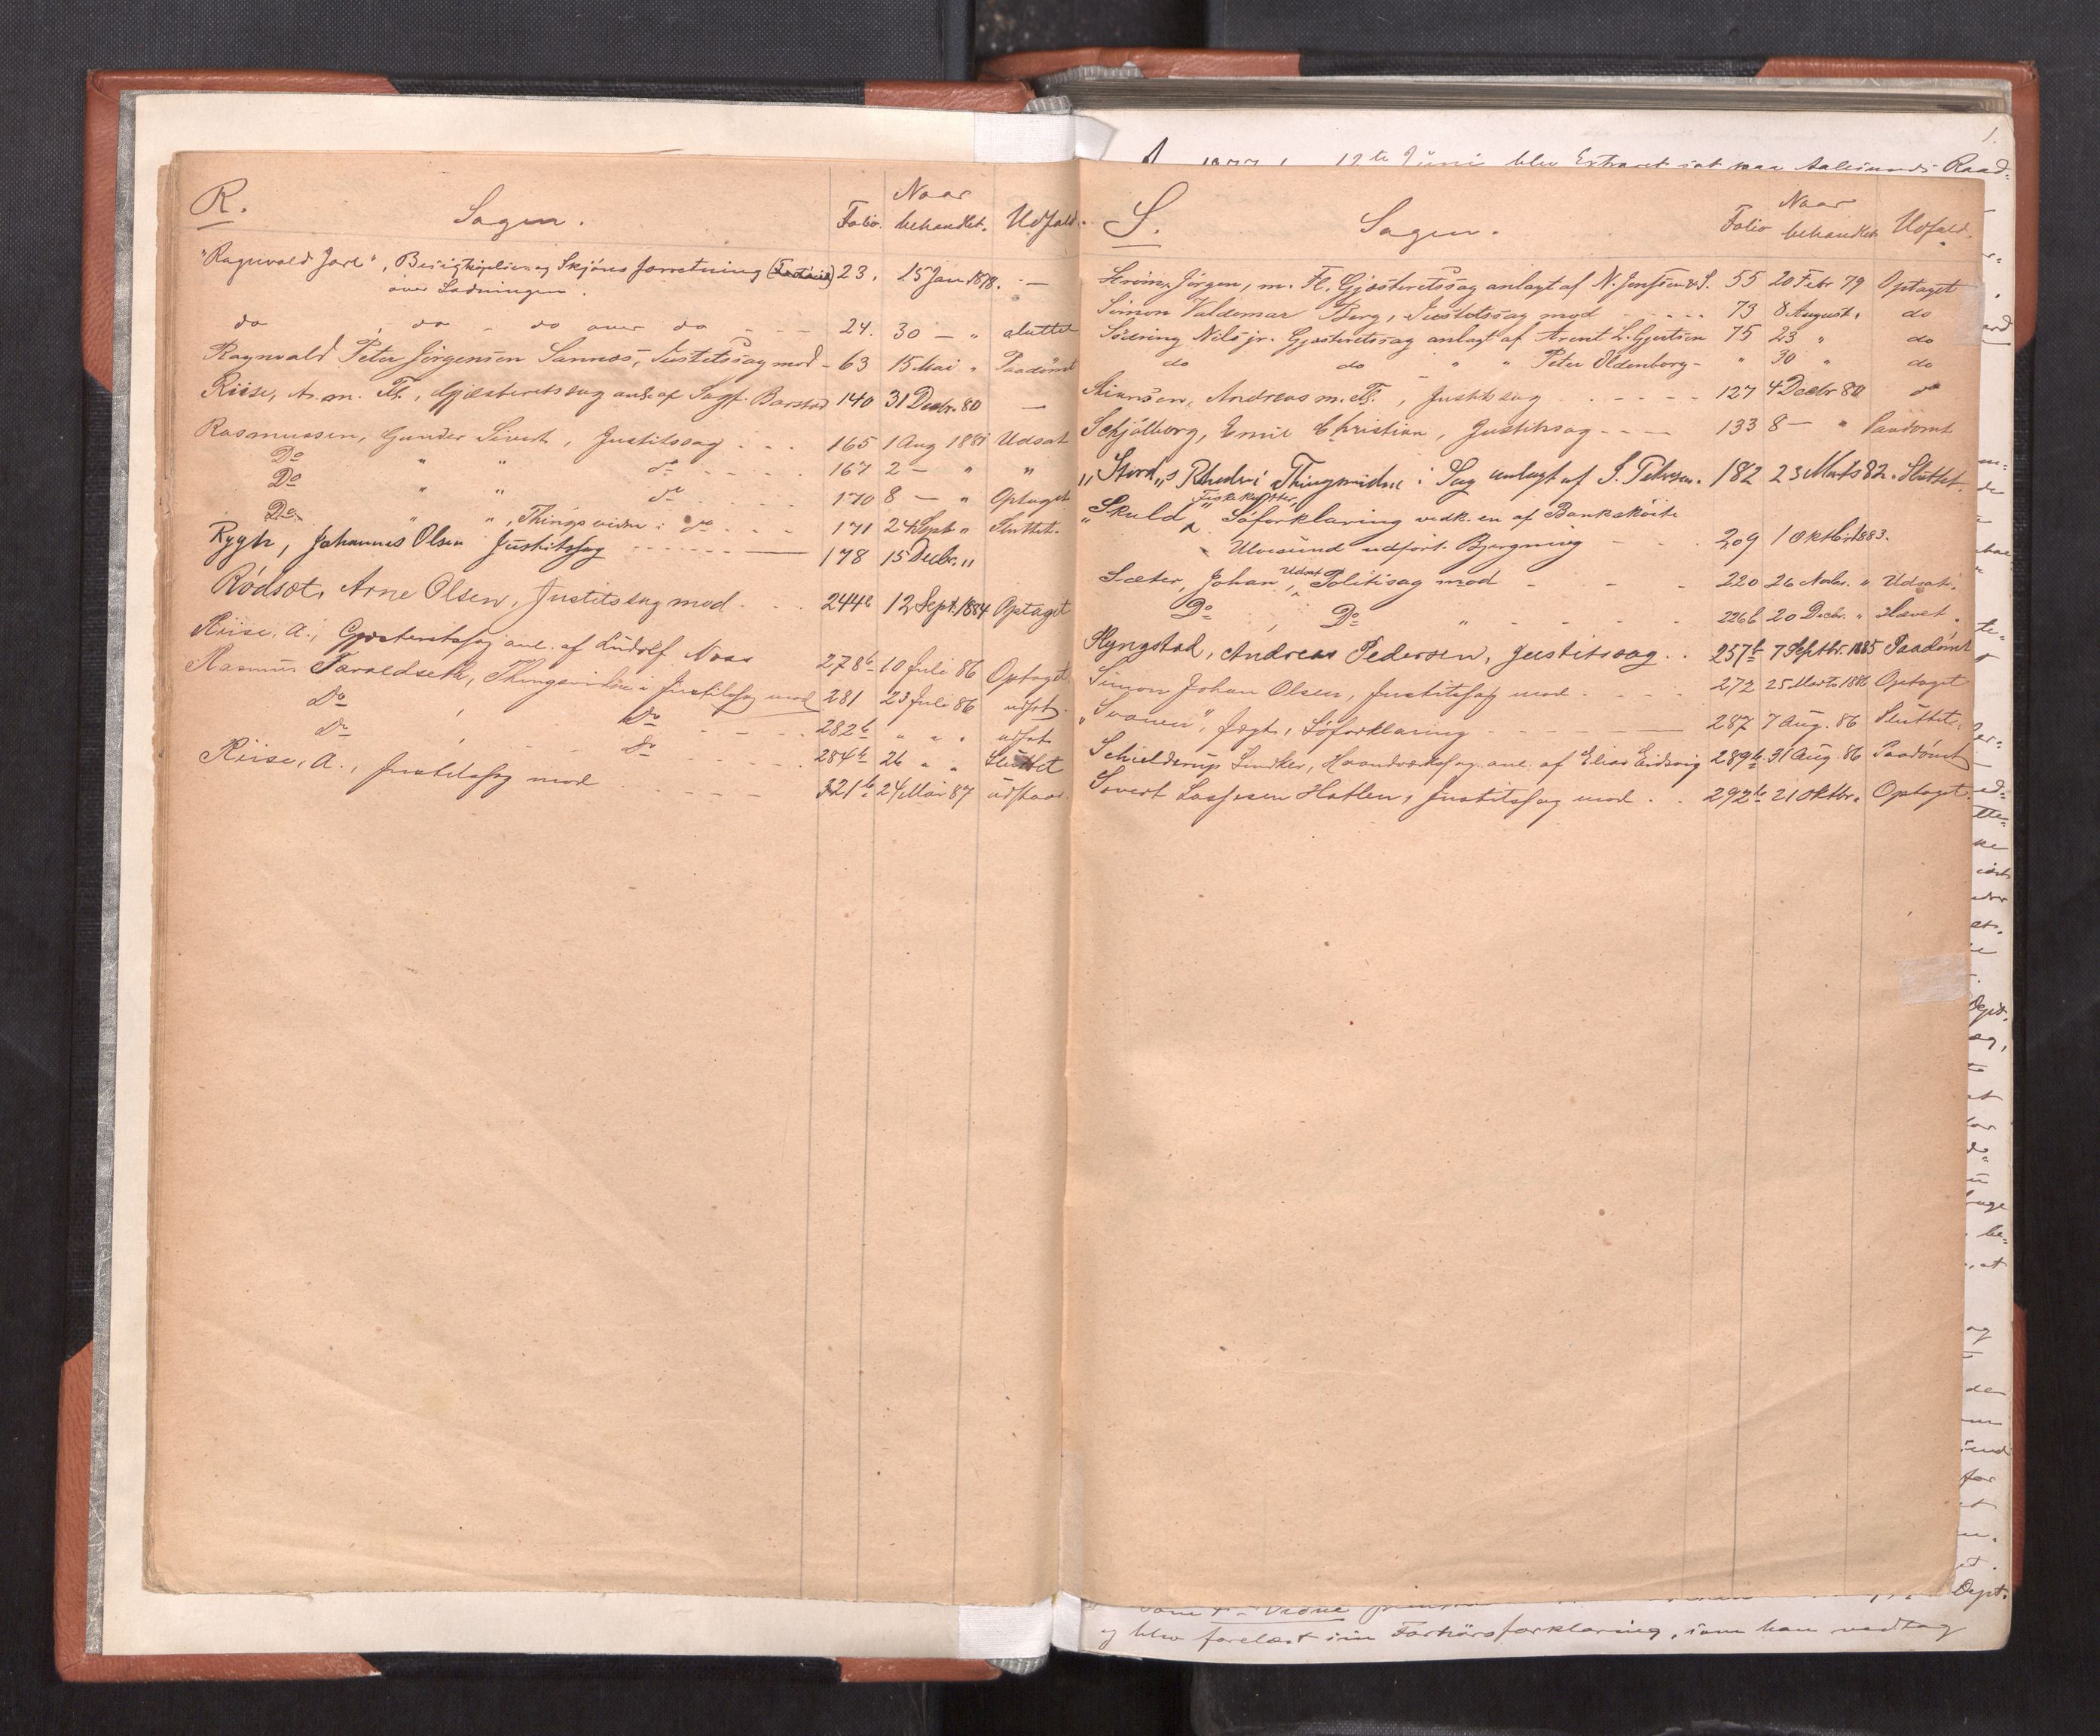 R.
Sagen.
Folio.
Naar behandlet.
Udfald.
"Ragnvald Jarl", Besigtigelses og Skjöns forretning 23. 15 Jan. 1878. —
over Ladningen.
do , do - do over do - - - 24. 30 — " sluttet
Ragnvald Peter Jörgensen Sannæs, Justitssag mod - 63 15 Mai " Paadömt
Riise, A. m. Fl., Gjæsteretssag anl. af Sagf. Barstad 140 31 Decbr. 80 —
Rasmussen, Gunder Sivert, Justitssag . . . 165 1 Aug 1881 Udsat
Do " " do . . . . . 167 2 — " "
Do " " do . . . . 170 8 — " Optaget
Do " ", Thingsvidne i do . . . 171 24 Sept " Sluttet.
Rygh, Johannes Olsen Justitssag . . . . . — 178 15 Decbr. "
Rödsæt, Arne Olsen, Justitssag mod . . . 244b 12 Sept. 1884 Optaget
Riise, A., Gjæsteretssag anl. af Ludolf Noss 278b 10 Juli 86 Optaget
Rasmus Taraldseth, Thingsvidne i Justitssag mod 281 23 Juli 86 udsat.
Do , . . Do . . . . . 282b " " " udsat
Do , . . . Do . . . . . 284b 26 " " Sluttet
Riise, A., Justitssag mod . . . . . 321b 24 Mai 87 udstaar.
S.
Sagen.
Folio
Naar behandlet
Udfald.
Ström, Jörgen, m. Fl. Gjæsteretssag anlagt af N. Jenssen & S. 55 20 Febr 79 Optaget
Simon Valdemar Berg, Justitssag mod - - - - - 73 8 August. do
Söering Nils jr. Gjæsteretssag anlagt af Arent L. Gjertsen 75 23 " do
do do " " Peter Oldenborg - " 30 " do
Andreas m. Fl., Justitssag . . - - - - - 127 4 Decbr 80 do
Schjölberg, Emil Christian, Justitssag - - - - 133 8 — " Paadömt
"Stord"s Rhederi Thingsvidne i Sag anlagt af S. Petersen. 182 23 Marts 82. Sluttet.
"Skuld" Fiskekutter, Söforklaring vedk. en af Banksköite
Ulvesund udfört Bjergning - - - 209 1 Oktbr 1883.
Sæter, Johan, Udsat Politisag mod - - - - 220 26 Novbr. " Udsat.
Do , Do " - - - - - 226b 20 Decbr. " Hævet.
Slyngstad, Andreas Pedersen, Justitssag . . 257b 7 Septbr. 1885 Paadömt
Simon Johan Olsen, Justitssag mod . - - - 272 25 Marts 1886 Optaget
"Svanen", Jægt, Söforklaring - - - - - — 287 7 Aug. 86 Sluttet.
Schielderup Snedker, Haandværkssag anl. af Elias Eidsvig 289b 31 Aug. 86 Paadömt
Sivert Lassesen Hatlen, Justitssag mod . . 292b 21 Oktbr. Optaget.
1.
12te Juni blev Extraret sat paa Aalesunds Raad-
og blev forelæst sin Forhörsforklaring, som han vedtog